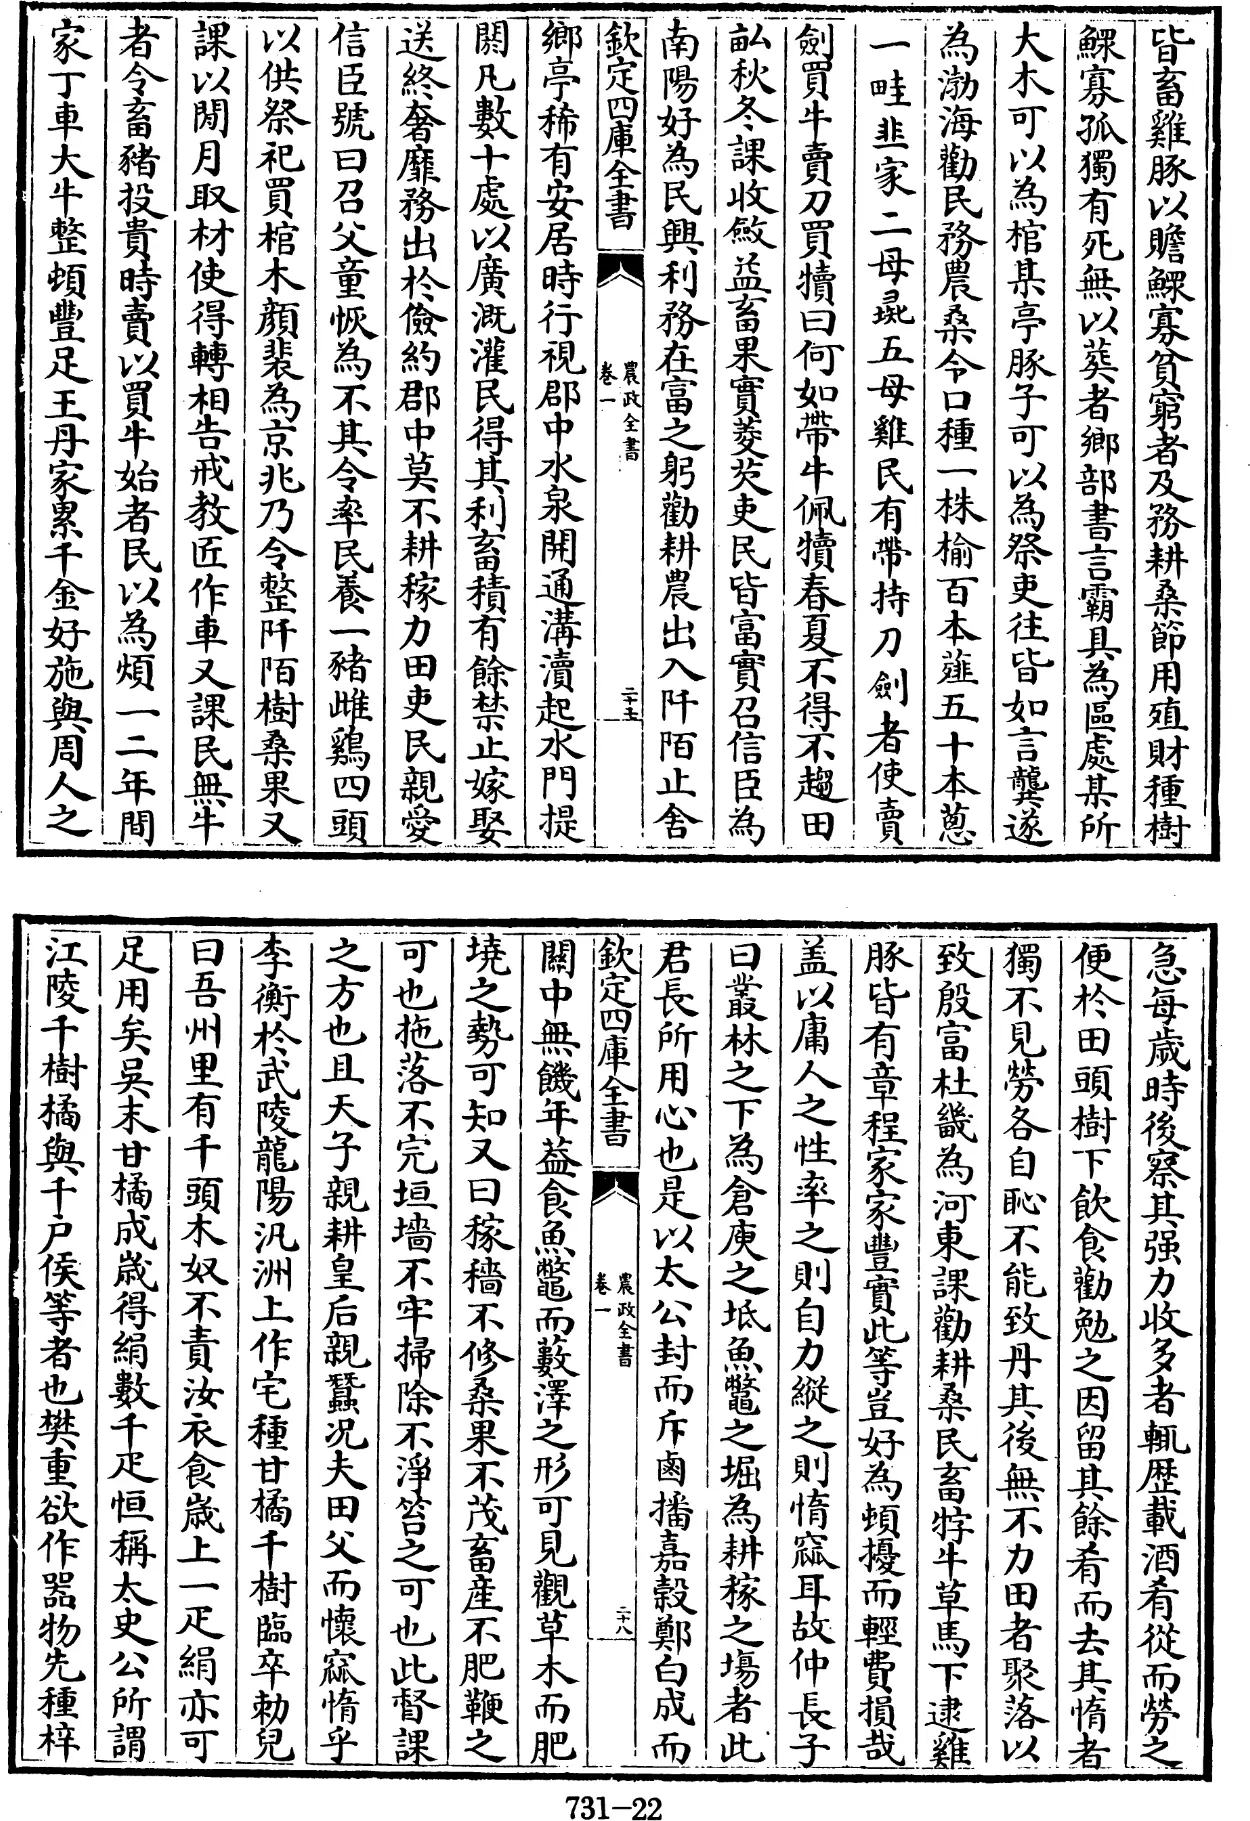 皆畜雞豚以贍鰥寡貧窮者及務耕桑節用殖財種樹
鰥寡孤獨有死無以葬者鄉部書言霸具為區處某所
大木可以為棺某亭豚子可以為祭吏往皆如言龔遂
為渤海勸民務農桑令口種一株榆百本薤五十本蔥
一畦韭家二母彘五母雞民有帶持刀劍者使賣
劍買牛賣刀買犢曰何如帶牛佩犢春夏不得不趨田
畝秋冬課收斂益畜果實菱芡吏民皆富實召信臣為
南陽好為民興利務在富之躬勸耕農出入阡陌止舍
欽定四庫全書
農政全書
卷一
二十七
鄉亭稀有安居時行視郡中水泉開通溝瀆起水門提
閼凡數十處以廣溉灌民得其利畜積有餘禁止嫁娶
送終奢靡務出於儉約郡中莫不耕稼力田吏民親愛
信臣號曰召父童恢為不其令率民養一豬雌鷄四頭
以供祭祀買棺木顏裴為京兆乃令整阡陌樹桑果又
課以閒月取材使得轉相告戒教匠作車又課民無牛
者令畜豬投貴時賣以買牛始者民以為煩一二年間
家丁車大牛整頓豐足王丹家累千金好施與周人之
急每歲時後察其强力收多者輒歴載酒肴從而勞之
便於田頭樹下飲食勸勉之因留其餘肴而去其惰者
獨不見勞各自恥不能致丹其後無不力田者聚落以
致殷富杜畿為河東課勸耕桑民畜牸牛草馬下逮雞
豚皆有章程家家豐實此等豈好為頓擾而輕費損哉
盖以庸人之性率之則自力縱之則惰窳耳故仲長子
曰叢林之下為倉庾之坻魚鼈之堀為耕稼之場者此
君長所用心也是以太公封而斥鹵播嘉穀鄭白成而
欽定四庫全書
農政全書
卷一
二十八
關中無饑年葢食魚鼈而藪澤之形可見觀草木而肥
墝之勢可知又曰稼穡不修桑果不茂畜産不肥鞭之
可也拖落不完垣墻不牢掃除不淨笞之可也此督課
之方也且天子親耕皇后親蠶况夫田父而懐窳惰乎
李衡於武陵龍陽汎洲上作宅種甘橘千樹臨卒勅兒
曰吾州里有千頭木奴不責汝衣食嵗上一疋絹亦可
足用矣吳末甘橘成嵗得絹數千疋恒稱太史公所謂
江陵千樹橘與千戶侯等者也樊重欲作器物先種梓
731-22